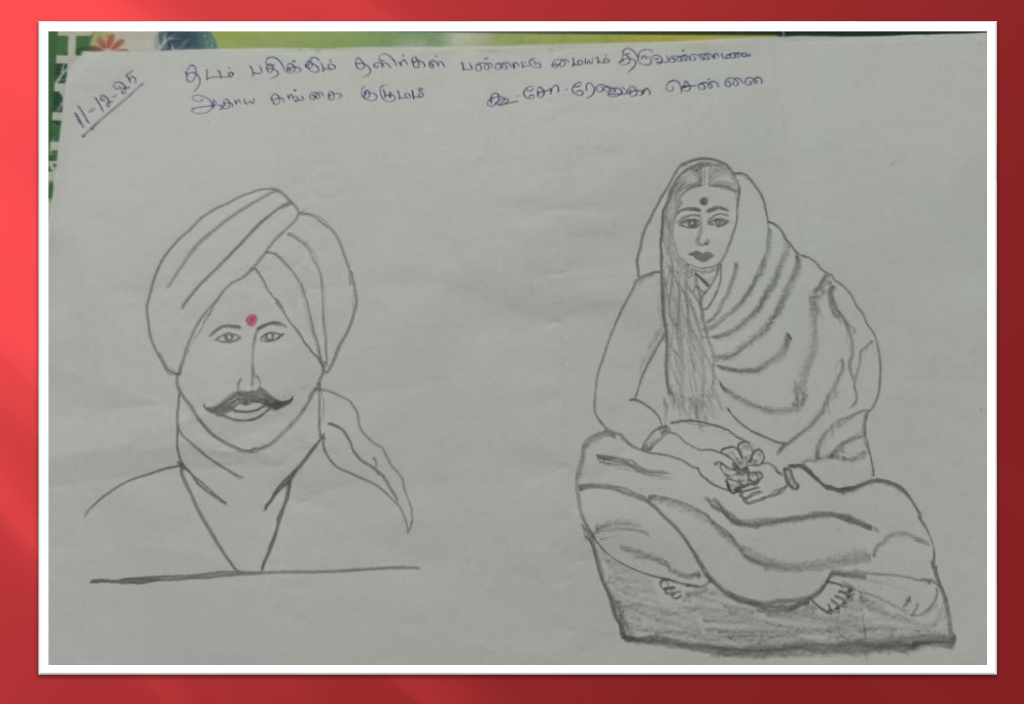 11-12-25
தடம் பதிக்கும் தளிர்கள் பன்னாட்டு மையம் திருவண்ணாமலை
ஆகாய கங்கை குழுமம் கூ.சோ.ரேணுகா சென்னை